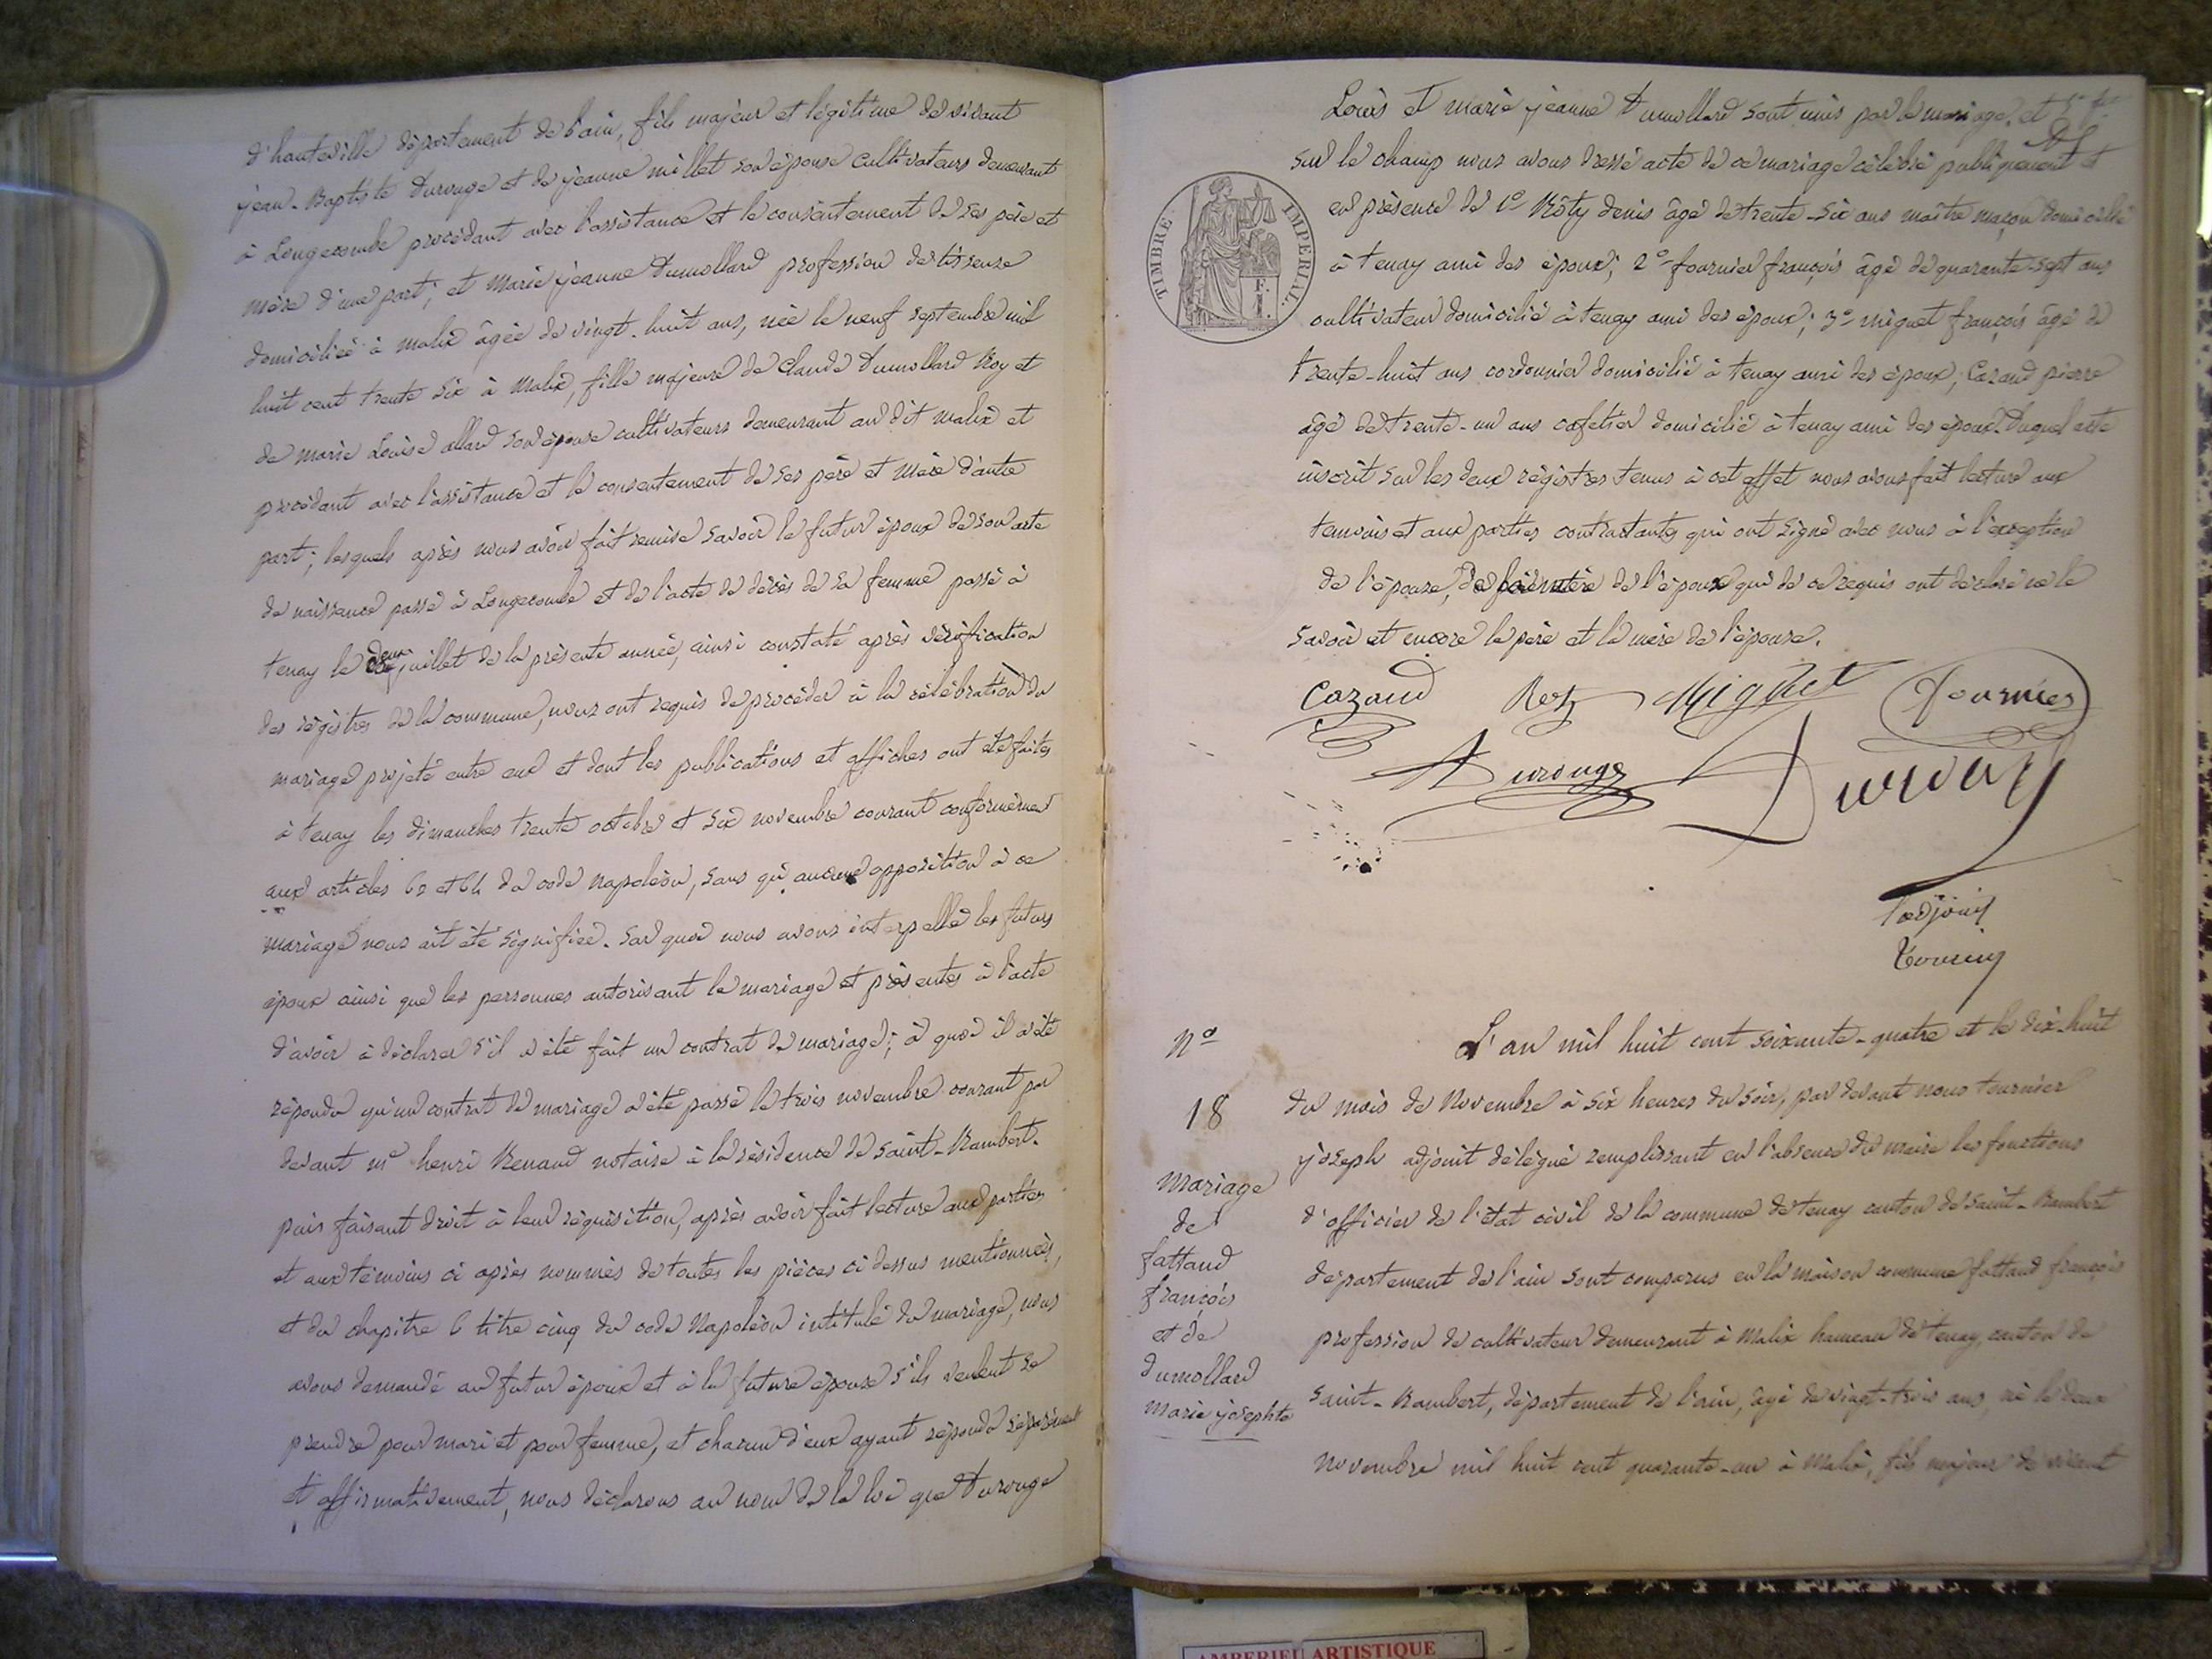 d'hauteville département de l'ain, fils majeur et légitime de vivant
jean-Baptiste Durouge et de jeanne millet son épouse cultivateurs demeurant
à Longecombe procédant avec l'assistance et le consentement de ses père et
mère d'une part; et Marie jeanne Dumollard profession de tisseuse
domiciliée à malix âgée de vingt-huit ans, née le neuf septembre mil
huit cent trente six à Malix, fille majeure de Claude Dumollard Roy et
de marie Louise allard son épouse cultivateurs demeurant au dit malix et
procédant avec l'assistance et le consentement de ses père et mère d'autre
part; lesquels après nous avoir fait remise savoir le futur époux de son acte
de naissance passé à Longecombe et de l'acte de décès de sa femme passé à
tenay le deux juillet de la présente année, ainsi constaté après vérification
des régistres de la commune, nous ont requis de procéder à la célébration du
mariage projeté entre eux et dont les publications et affiches ont été faites
à tenay les dimanches trente octobre et six novembre courant conformément
aux articles et 64 du code napoléon, sans qu'aucune opposition à ce
mariage nous ait été signifiée. Sur quoi nous avons interpellé les futurs
époux ainsi que les personnes autorisant le mariage et présentes à l'acte
d'avoir à déclarer s'il a été fait un contrat de mariage; à quoi il a été
répondu qu'un contrat de mariage a été passé le trois novembre courant par
devant me henri Renaud notaire à la résidence de Saint-Rambert.
puis faisant droit à leur réquisition, après avoir fait lecture aux parties
et aux témoins ci après nommés de toutes les pièces ci dessus mentionnées,
et du chapitre 6 titre cinq du code Napoléon intitulé du mariage, nous
avons demandé au futur époux et à la future épouse s'ils veulent se
prendre pour mari et pour femme, et chacun d'eux ayant répondu séparément
et affirmativement, nous déclarons au nom de la loi que Durouge
Louis et marie jeanne Dumollard sont unis par le mariage. et
sur le champ nous avons dressé acte de ce mariage célébré publiquement et
en présence de 1º Rôty denis âgé de trente-six ans maître maçon domicilié
à tenay ami des époux; 2º fournier françois âgé de quarante-sept ans
cultivateur domicilié à tenay ami des époux; 3º miguet françois âgé de
trente-huit ans cordonnier domicilié à tenay ami des époux, Cazaud pierre
âgé de trente-un ans cafetier domicilié à tenay ami des époux. Duquel acte
inscrit sur les deux régistres tenus à cet effet nous avons fait lecture aux
temoins et aux parties contractantes qui ont signé avec nous à l'exception
de l'épouse, de mère de l'époux qui de ce requis ont déclaré ne le
savoir et encore le père et la mère de l'épouse.
TIMBRE IMPERIAL.
Cazaud Roty Miguet Fournier
Durouge Durouge
l'adjoint
Tournier
Nº
18
Mariage
de
fattaud
françois
et de
dumollard
marie josephte
L'an mil huit cent soixante-quatre et le dix-huit
du mois de Novembre à six heures du soir, par devant nous tournier
joseph adjoint délégué remplissant en l'absence du maire les fonctions
d'officier de l'état civil de la commune de tenay canton de Saint-Rambert
département de l'ain sont comparus en la maison commune fattaud françois
profession de cultivateur demeurant à Malix hameau de tenay, canton de
Saint-Rambert, département de l'ain, âgé de vingt-trois ans, né le deux
novembre mil huit cent quarante-un à Malix, fils majeur de vivant
AMBERIEU ARTISTIQUE